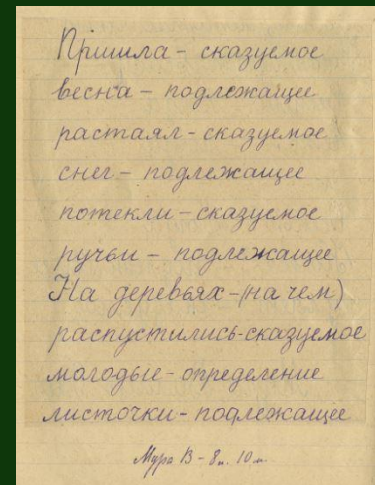 Пришла - сказуемое
весна - подлежащее
растаял - сказуемое
снег - подлежащее
потекли - сказуемое
ручьи - подлежащее
На деревьях - (на чем)
распустились - сказуемое
молодые - определение
листочки - подлежащее
Мура В - 8 л. 10 м.